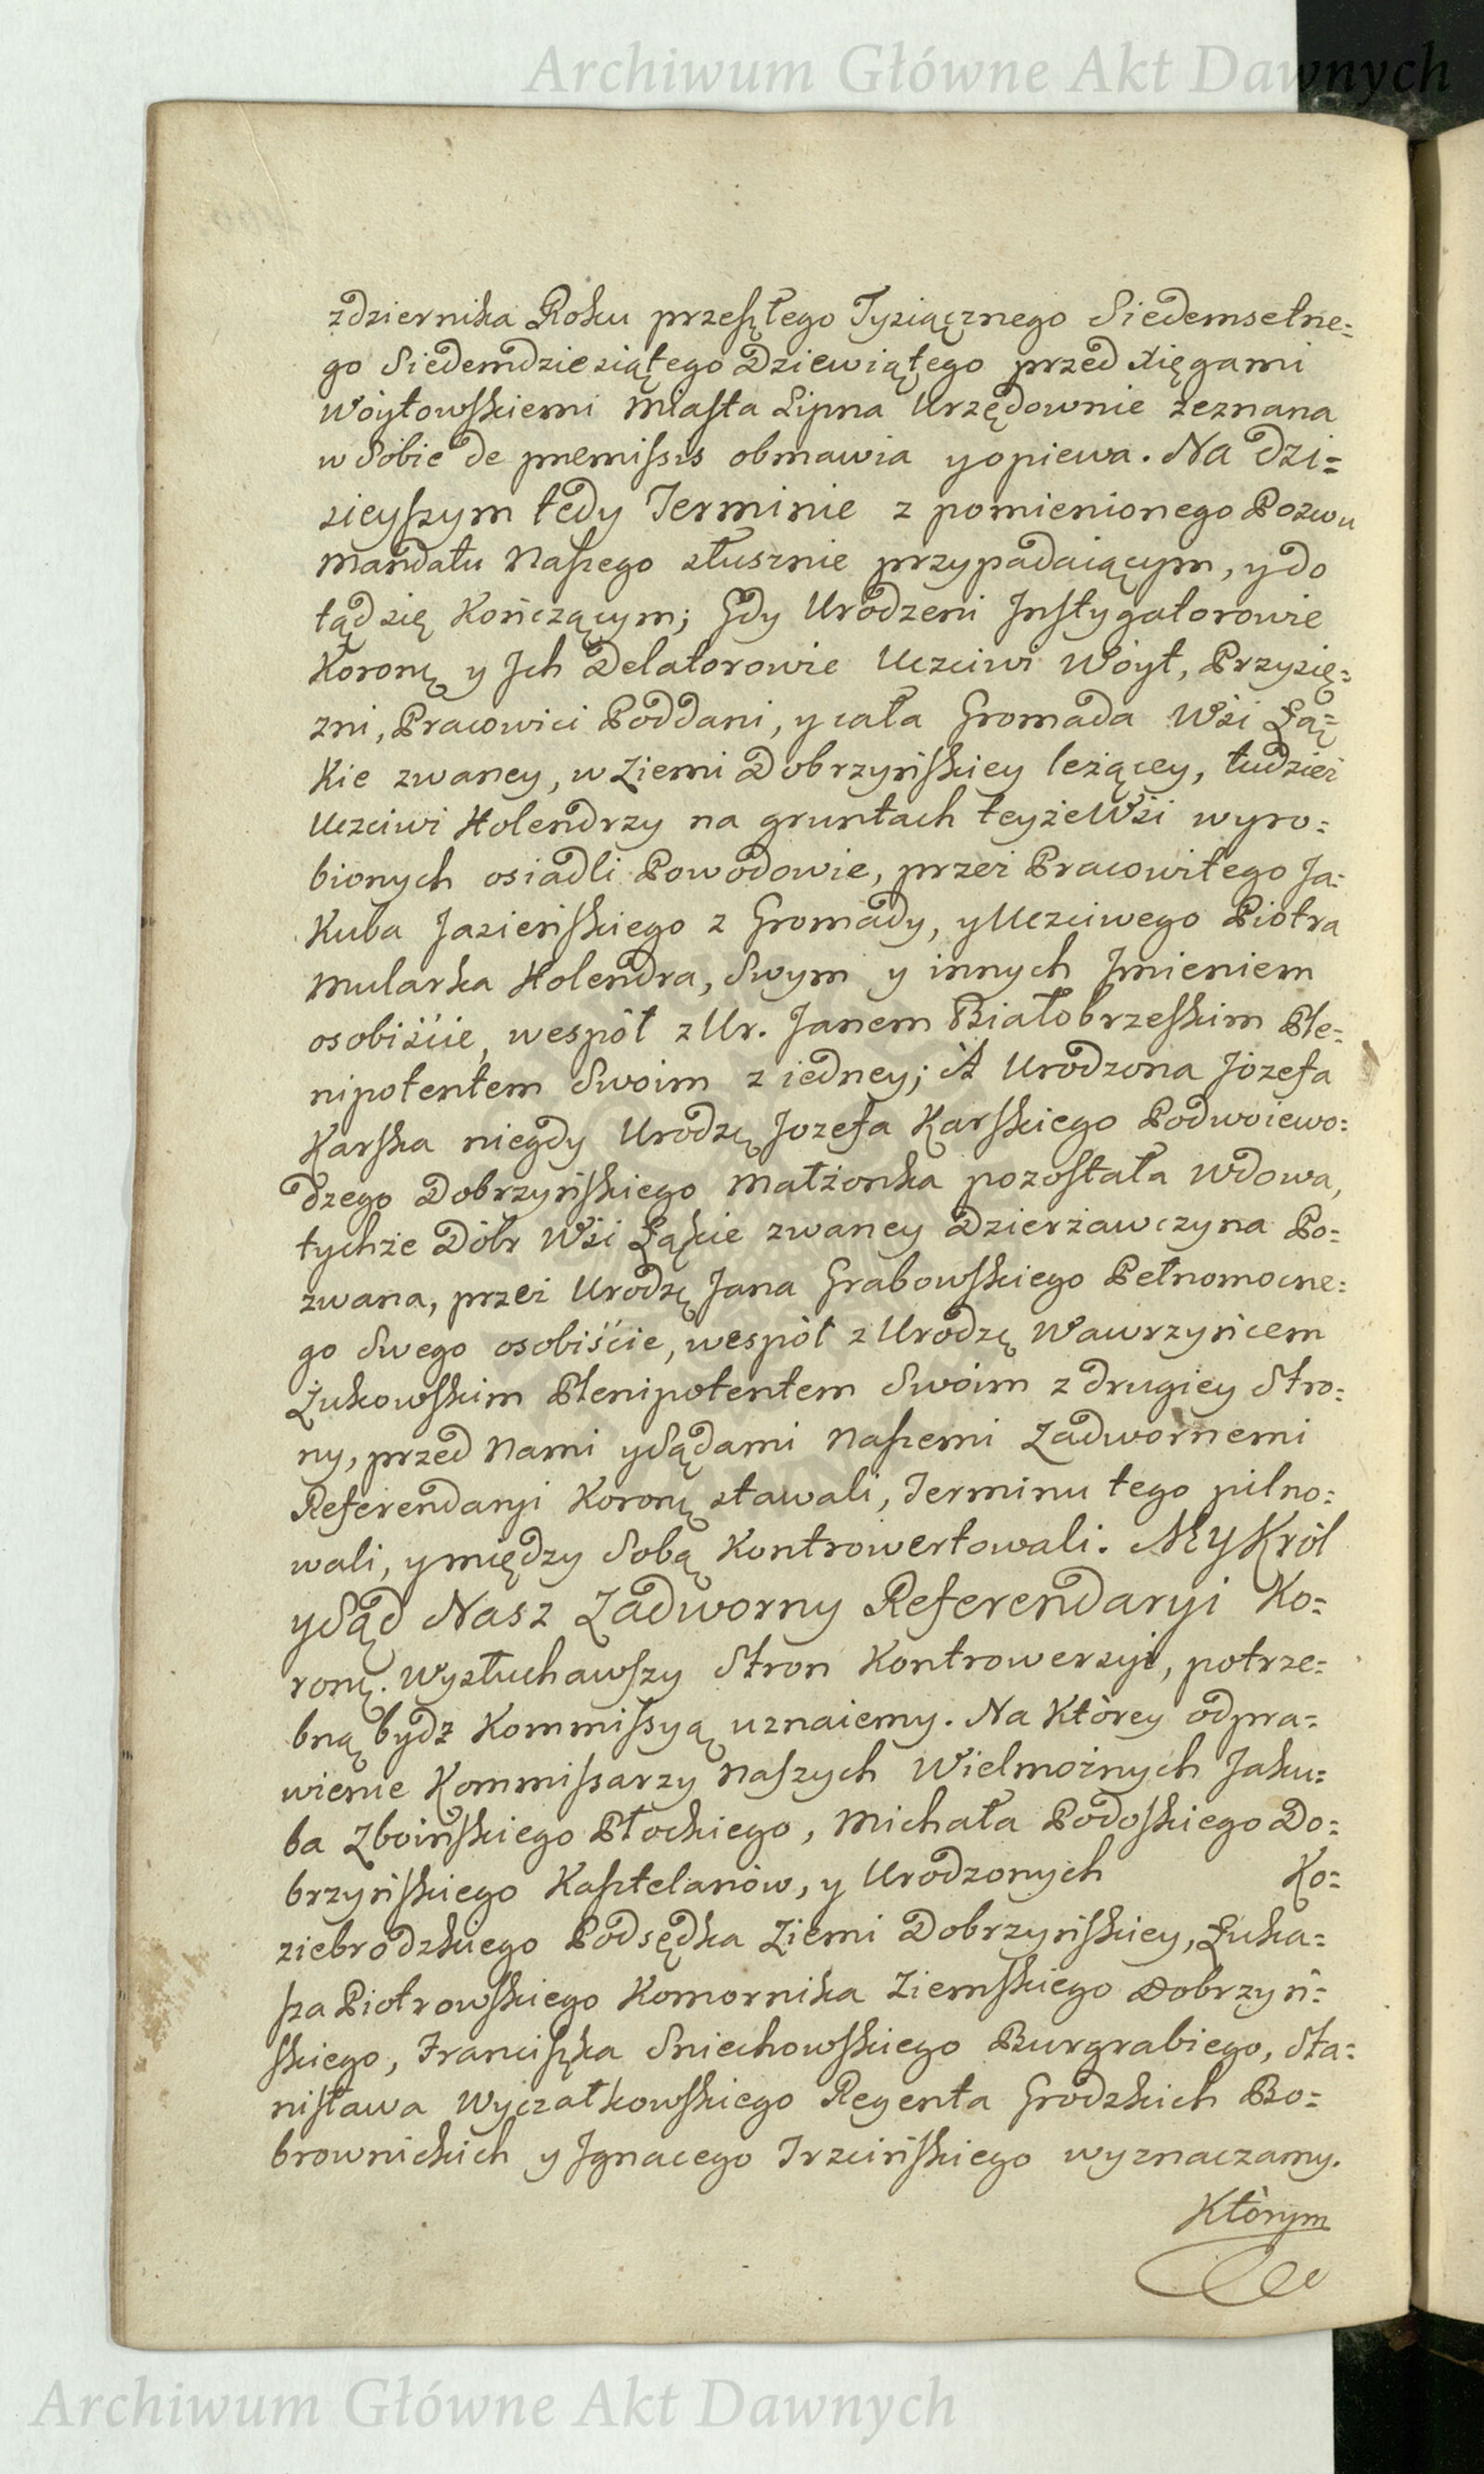 Archiwum Główne Akt Dawnych
zdziernika Roku przeszłego Tysiącznego Siedemsetne=
go Siedemdziesiątego Dziewiątego przed Xięgami
Woytowskiemi Miasta Lipna Urzędownie zeznana
w Sobie de premissis obmawia y opiewa. Na dzi=
sieyszym tedy Terminie z pomienionego Pozwu
Mandatu Naszego słusznie przypadaiącym, y do
tąd się Kończącym; Gdy Urodzeni Instygatorowie
Koronę y Jch Delatorowie Uczciwi Woyt, Przysię=
zni, Pracowici Poddani, y cała Gromada Wśi Łą=
Kie zwaney, w Ziemi Dobrzyńskiey leżącey, tudzież
Uczciwi Holendrzy na gruntach teyże Wśi wyro=
bionych osiadli Powodowie, przez Pracowitego Ja=
Kuba Jasieńskiego z Gromady, y Uczciwego Piotra
Mularka Holendra, Swym y innych Jmieniem
osobiście, wespół z Ur. Janem Białobrzeskim Ple=
nipotentem Swoim z iedney; A Urodzona Józefa
Karska niegdy Urodzę Jozefa Karskiego Podwoiewo=
dzego Dobrzyńskiego Małżonka pozostała Wdowa,
tychże Dóbr Wśi Łąkie zwaney Dzierżawczyna Po=
zwana, przez Urodzę Jana Grabowskiego Pełnomocne=
go Swego osobiście, wespół z Urodzę Wawrzyńcem
Żukowskim Plenipotentem Swoim z drugiey Stro=
ny, przed Nami y Sądami Naszemi Zadwornemi
Referendaryi Koronę stawali, Terminu tego pilno=
wali, y między Sobą Kontrowertowali. My Król
y Sąd Nasz Zadworny Referendaryi Ko=
ronę. Wysłuchawszy Stron Kontrowersyi, potrze=
bną bydz Kommissyą uznaiemy. Na Którey odpra=
wienie Kommissarzy Naszych Wielmożnych Jaku=
ba Zboińskiego Płockiego, Michała Podoskiego Do=
brzyńskiego Kasztelanów, y Urodzonych Ko=
ziebrodzkiego Podsędka Ziemi Dobrzyńskiey, Łuka=
sza Piotrowskiego Komornika Ziemskiego Dobrzyń=
skiego, Franciszka Sniechowskiego Burgrabiego, Sta=
nisława Wyczałkowskiego Regenta Grodzkich Bo=
brownickich y Jgnacego Trzcińskiego wyznaczamy.
Którym
Archiwum Główne Akt Dawnych